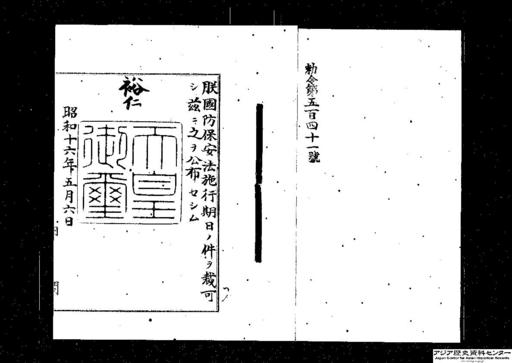 勅令第五百四十一號
朕國防保安法施行期日ノ件ヲ裁可
シ茲ニ之ヲ公布セシム
裕仁
天皇
御璽
昭和十六年五月六日
アジア歴史資料センター
Japan Center for Asian Historical Records